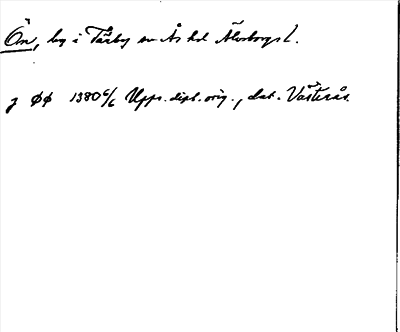 Ön, by i Tärby sn Ås hd Älvsborgs l.
j ØØ 1380 6/6 Upps. dipl. orig., dat. Västerås.